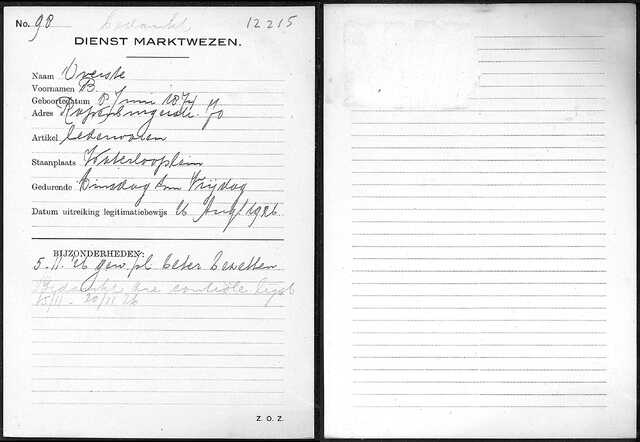 No. 98 Bedankt 12215
DIENST MARKTWEZEN.
Naam Overste
Voornamen B.
Geboortedatum 8 Juni 1874
Adres Rapenburgerstr. 70
Artikel lederwaren
Staanplaats Waterlooplein
Gedurende Dinsdag t/m Vrijdag
Datum uitreiking legitimatiebewijs 26 Aug. 1926.
BIJZONDERHEDEN:
5.11.'26 gew. pl. beter bezetten
Bedankt controle lijst
15/11 - 20/11 26
Z. O. Z.